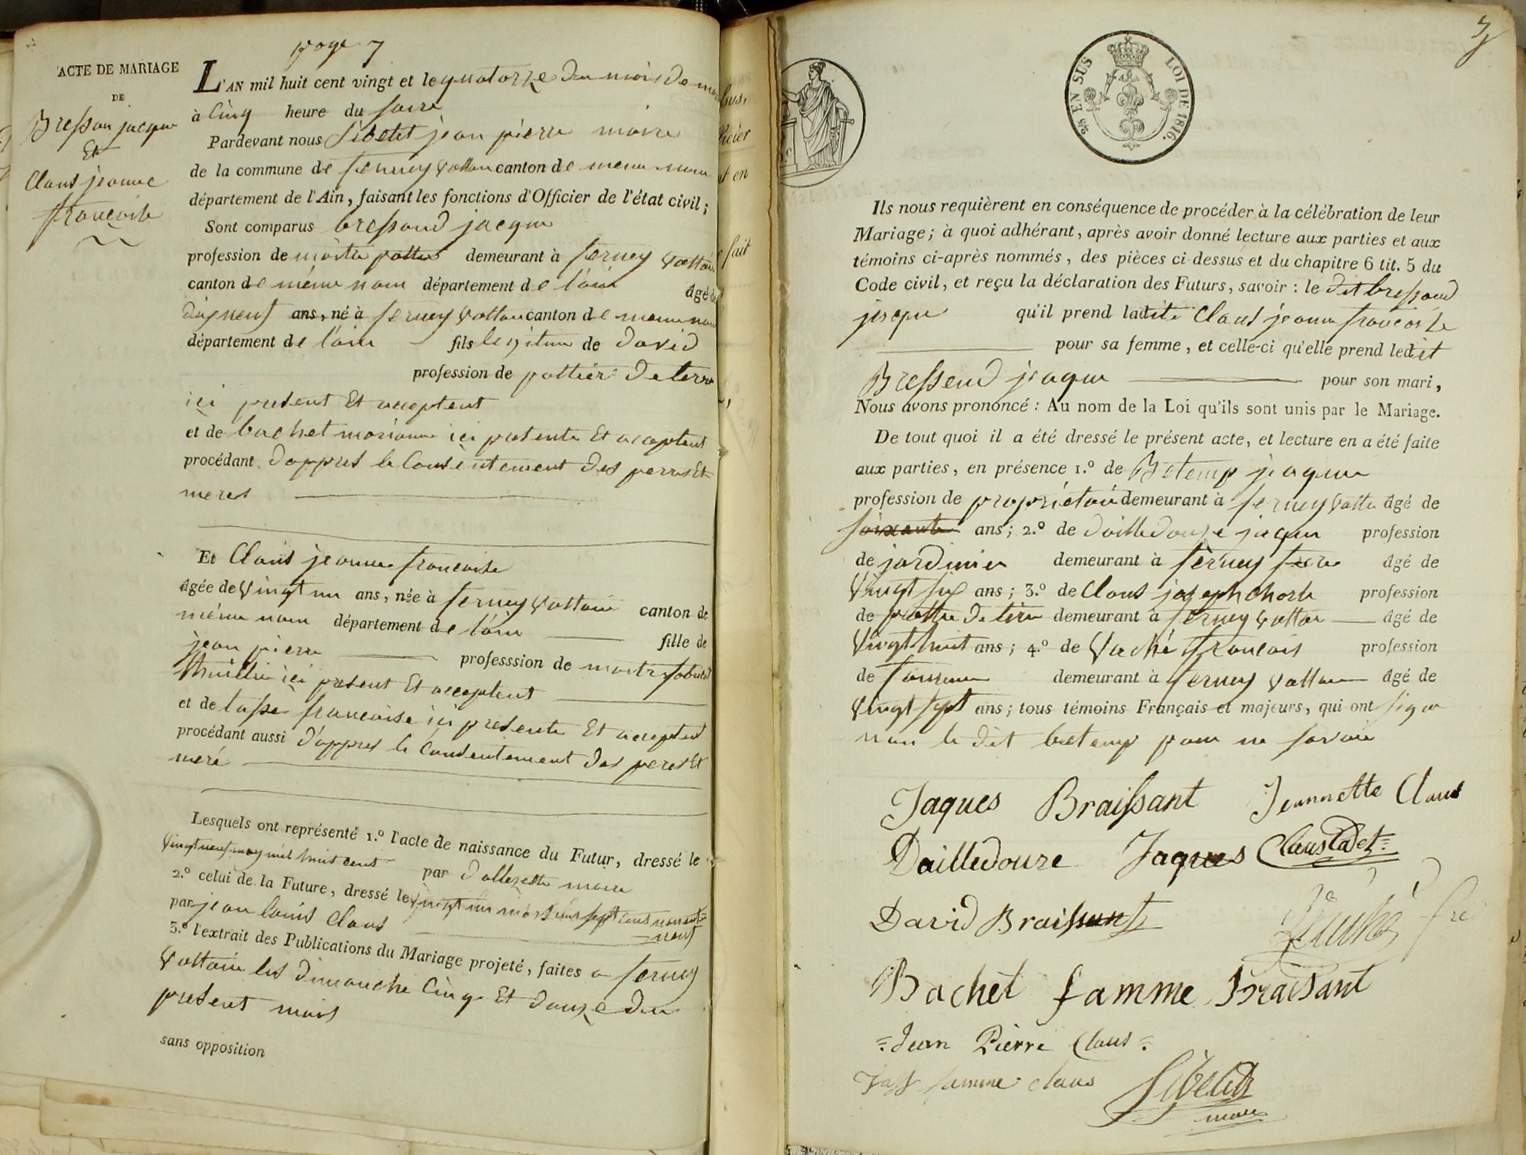 page 7
ACTE DE MARIAGE
DE
Bressau jacque
Et
Claus jeanne
francoise
L'AN mil huit cent vingt et le quatorze du mois de
à Cinq heure du soire
Pardevant nous Sibelit jean pierre maire
de la commune de ferney voltaire canton de meme nom
département de l'Ain, faisant les fonctions d'Officier de l'état civil;
Sont comparus bressaud jacque
profession de maitre pottier demeurant à ferney voltaire
canton de même nom département de l'ain âgé de
dixneuf ans, né à ferney voltaire canton de meme nom
département de l'ain fils legitime de david
profession de pottier de terre
ici present Et acceptent
et de bachet marianne ici presente Et acceptent
procédant d'appres le Consentement des peres Et
meres
Et Claus jeanne francoise
âgée de vingt un ans, née à ferney voltaire canton de
même nom département de l'ain fille de
jean pierre professsion de maitre
ici present Et acceptent
et de tasse francoise ici presente Et acceptent
procédant aussi d'appres le Consentement des peres Et
meré
Lesquels ont représenté 1.º l'acte de naissance du Futur, dressé le
vingt neuf may mil huit cent par maire
2.º celui de la Future, dressé le vingt un mars mil sept cent nonante
neuf
par jean louis Claus
3.º l'extrait des Publications du Mariage projeté, faites a ferney
voltaire les dimanche Cinq Et douze du
present mois
sans opposition
7
25 EN SUS
LOI DE 1816.
Ils nous requièrent en conséquence de procéder à la célébration de leur
Mariage; à quoi adhérant, après avoir donné lecture aux parties et aux
témoins ci-après nommés, des pièces ci dessus et du chapitre 6 tit. 5 du
Code civil, et reçu la déclaration des Futurs, savoir: le dit bressaud
jacque qu'il prend ladite Claus jeanne francoise
pour sa femme, et celle-ci qu'elle prend ledit
Bressend jacque pour son mari,
Nous avons prononcé: Au nom de la Loi qu'ils sont unis par le Mariage.
De tout quoi il a été dressé le présent acte, et lecture en a été faite
aux parties, en présence 1.º de Betemp jacque
profession de propriétaire demeurant à ferney voltaire âgé de
soixante ans; 2.º de dailledouze jacque profession
de jardinier demeurant à ferney âgé de
vingt six ans; 3.º de Claus joseph profession
de pottier de terre demeurant à ferney voltaire âgé de
vingt huit ans; 4.º de Vaché francois profession
de demeurant à ferney voltaire âgé de
vingt sept ans; tous témoins Français et majeurs, qui ont signe
non le dit betemp pour ne savoir
Jaques Braissant Jeannette Claus
Dailledouze Jaques Claus Cadet
David Braissant
Bachet famme Braisant
Jean Pierre Claus
famme claus Sibelit
maire